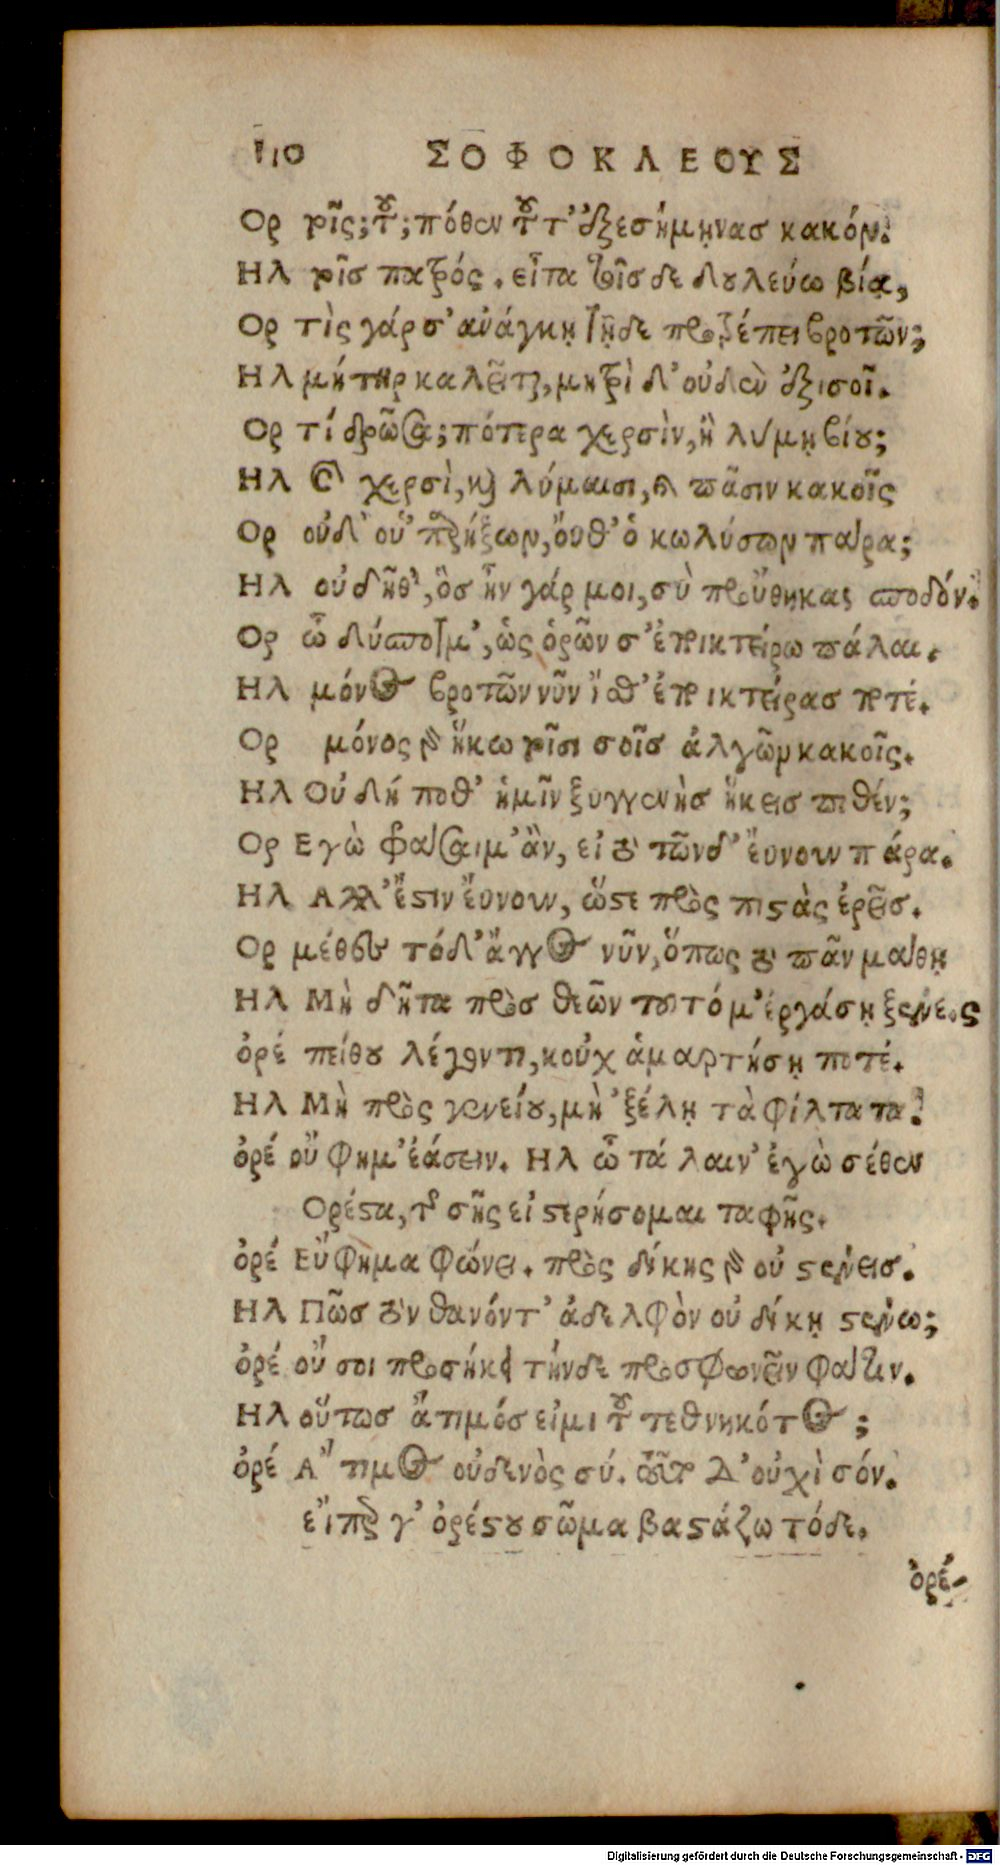 110 ΣΟΦΟΚΛΕΟΥΣ
Ορ τοῖς; τοῦ; πόθεν τοῦτ' ἐξεσήμῃνας κακόν.
Ηλ τοῖσ πατρός. εἶτα τοῖσδε δουλεύω βίᾳ,
Ορ τὶς γάρ σ' ἀνάγκῃ τῇδε προτρέπει βροτῶν;
Ηλ μήτηρ καλεῖται, μητρὶ δ' οὐδὲν ἐξισοῖ.
Ορ τί δρῶσα; πότερα χερσὶν, ἢ λύμῃ βίου;
Ηλ καὶ χερσὶ, καὶ λύμαισι, καὶ πᾶσιν κακοῖς
Ορ οὐδ' οὑπαρήξων, ὄυθ' ὁ κωλύσων πάρα;
Ηλ οὐ δῆθ', ὃσ ἦν γάρ μοι, σὺ προὔθηκας σποδόν.
Ορ ὦ δύσποτμ', ὡς ὁρῶν σ' ἐποικτείρω πάλαι.
Ηλ μόνος βροτῶν νῦν ἴσθ' ἐποικτείρασ ποτέ.
Ορ μόνος γὰρ ἥκω τοῖσι σοῖσ ἀλγῶν κακοῖς.
Ηλ Οὐ δή ποθ' ἡμῖν ξυγγενὴσ ἥκεισ ποθέν;
Ορ Εγὼ φράσαιμ' ἂν, εἰ τὸ τῶνδ' ἔυνουν πάρα.
Ηλ Αλλ' ἔστιν ἔυνουν, ὥστε πρὸς πιστὰς ἐρεῖσ.
Ορ μέθες τόδ' ἄγγος νῦν, ὅπως τὸ πᾶν μάθῃ
Ηλ Μὴ δῆτα πρὸσ θεῶν τοῦτό μ' ἐργάσῃ ξένε.ς
ὀρέ πείθου λέγοντι, κοὐχ ἁμαρτήσῃ ποτέ.
Ηλ Μὴ πρὸς γενείου, μὴ 'ξέλῃ τὰ φίλτατα.
ὀρέ οὔ φημ' ἐάσειν. Ηλ ὦ τάλαιν' ἐγὼ σέθεν
Ορέστα, τῆς σῆς εἰ στερήσομαι ταφῆς.
ὀρέ Εὔφημα φώνει. πρὸς δίκης γὰρ οὐ στένεισ.
Ηλ Πῶσ τὸν θανόντ' ἀδελφὸν οὐ δίκῃ στένω;
ὀρέ οὔ σοι προσήκει τήνδε προσφωνεῖν φάτιν.
Ηλ οὕτωσ ἄτιμόσ εἰμι τοῦ τεθνηκότος;
ὀρέ Ἄτιμος οὐδενὸς σύ. τοῦτο δ' οὐχὶ σόν.
εἴπερ γ' ὀρέστου σῶμα βαστάζω τόδε.
ὀρέ
Digitalisierung gefördert durch die Deutsche Forschungsgemeinschaft - DFG